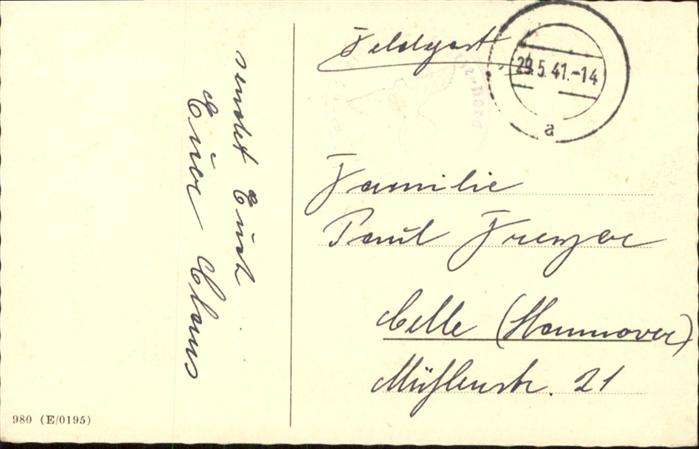 sendet Euch
Euer Claus
Feldpost
29.5.41.-14
a
Familie
Paul
Celle (Hannover)
Mühlenstr. 21
980 (E/0195)